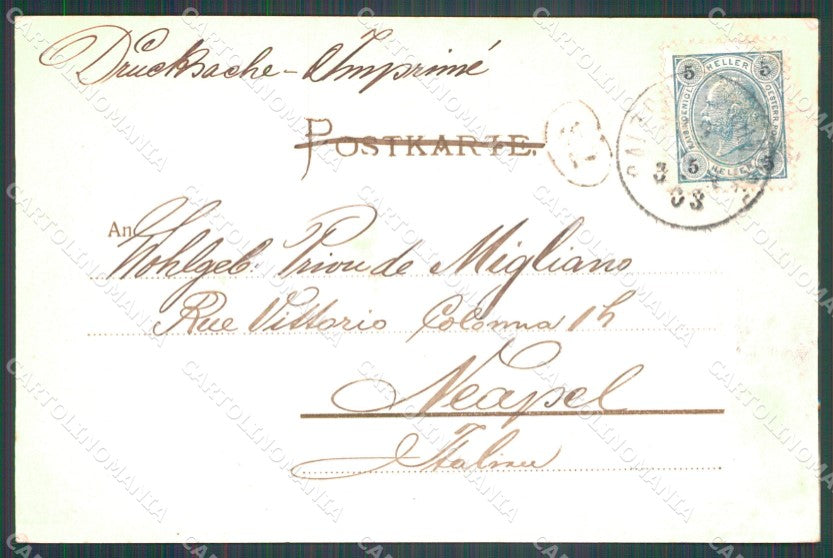 Drucksache - Imprimé
POSTKARTE.
5 HELLER 5
5 HELLER 5
3 03
An
Wohlgeb. Priou de Migliano
Rue Vittorio Colonna 14
Neapel
Italien
CARTOLINOMANIA